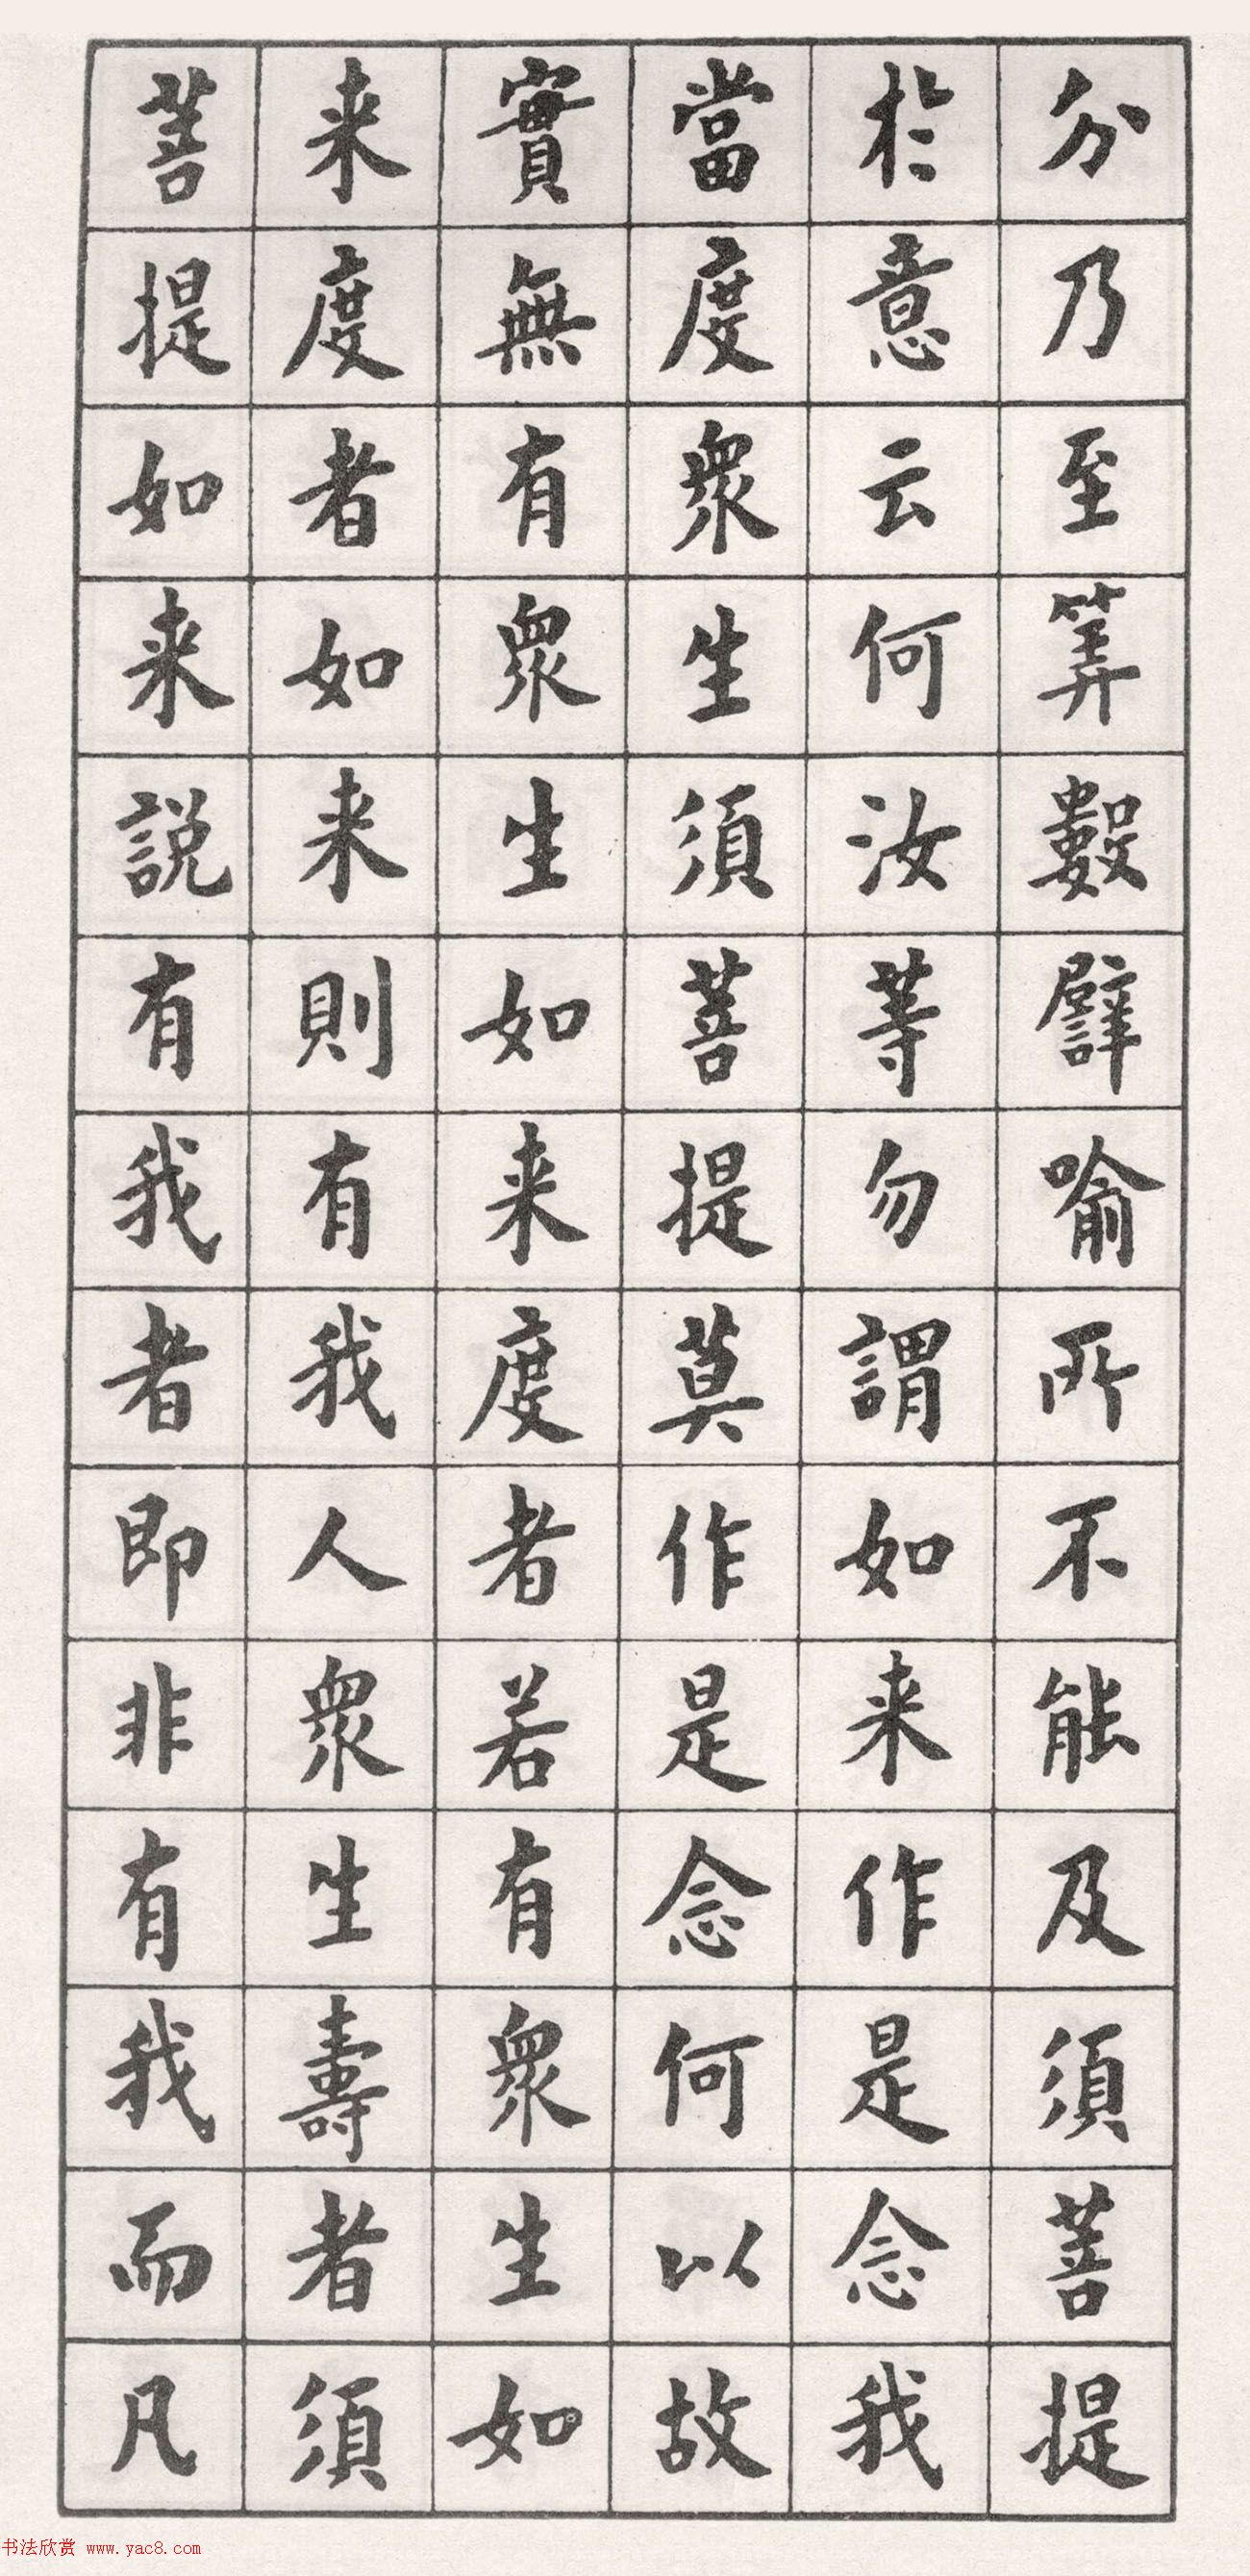 分乃至筭數譬喻所不能及須菩提
於意云何汝等勿謂如来作是念我
當度衆生須菩提莫作是念何以故
實無有衆生如来度者若有衆生如
来度者如来則有我人衆生壽者須
菩提如来説有我者即非有我而凡
书法欣赏 www.yac8.com